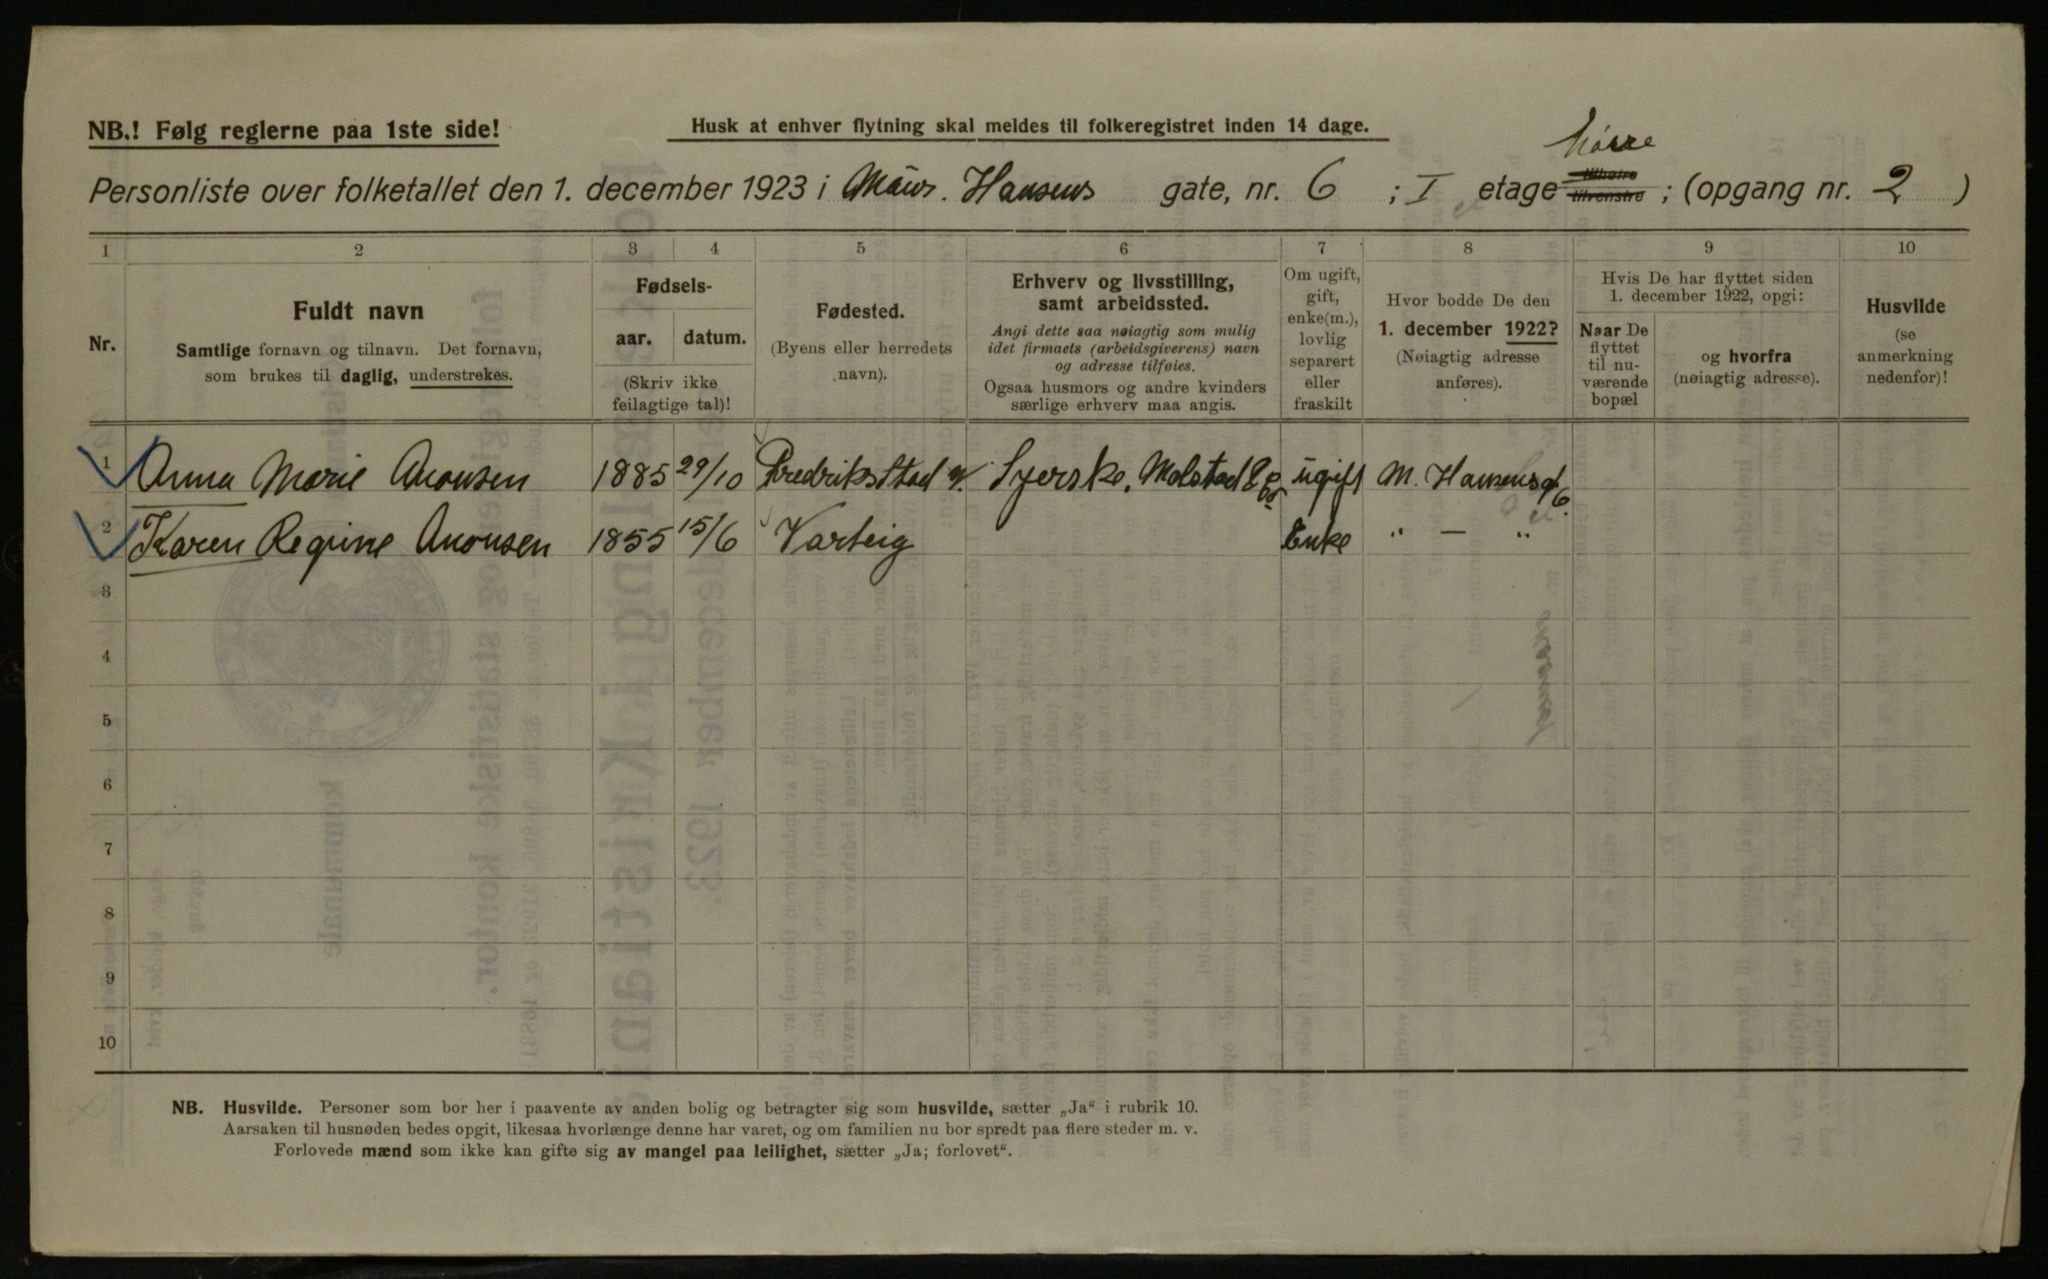 NB.! Følg reglerne paa 1ste side!
Husk at enhver flytning skal meldes til folkeregistret inden 14 dage.
Personliste over folketallet den 1. december 1923 i Maur. Hansens gate, nr. 6 ; I etage tilhøire tilvenstre ; (opgang nr. 2 )
1 2 3 4 5 6 7 8 9 10
Nr.
Fuldt navn
Samtlige fornavn og tilnavn. Det fornavn,
som brukes til daglig, understrekes.
Fødsels-
aar. datum.
(Skriv ikke
feilagtige tal)!
Fødested.
(Byens eller herredets
navn).
Erhverv og livsstilling,
samt arbeidssted.
Angi dette saa nøiagtig som mulig
idet firmaets (arbeidsgiverens) navn
og adresse tilføies.
Ogsaa husmors og andre kvinders
særlige erhverv maa angis.
Om ugift,
gift,
enke(m.),
lovlig
separert
eller
fraskilt
Hvor bodde De den
1. december 1922?
(Nøiagtig adresse
anføres).
Hvis De har flyttet siden
1. december 1922, opgi:
Naar De
flyttet
til nu-
værende
bopæl
og hvorfra
(nøiagtig adresse).
Husvilde
(se
anmerkning
nedenfor)!
1 Anna Marie Amonsen 1885 29/10 Fredriksstad Syerske, Molstad ugift M. Hansensg 6.
2 Karen Regine Amonsen 1855 15/6 Varteig Enke " — "
3
4
5
6
7
8
9
10
NB. Husvilde. Personer som bor her i paavente av anden bolig og betragter sig som husvilde, sætter „Ja“ i rubrik 10.
Aarsaken til husnøden bedes opgit, likesaa hvorlænge denne har varet, og om familien nu bor spredt paa flere steder m. v.
Forlovede mænd som ikke kan gifte sig av mangel paa leilighet, sætter „Ja; forlovet“.